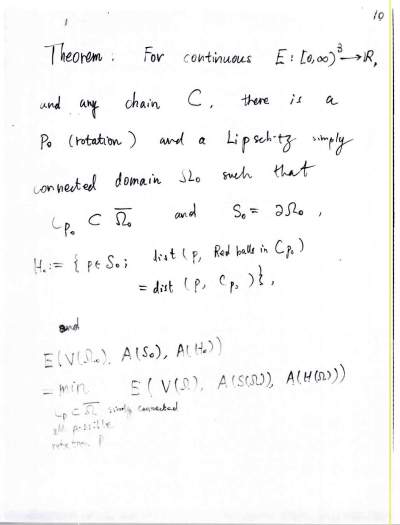 10
Theorem : For continuous E : [0,∞)³ → ℝ,
and any chain C, there is a
P₀ (rotation) and a Lipschitz simply
connected domain Ω₀ such that
C_P₀ ⊂ Ω̅₀ and S₀ = ∂Ω₀ ,
H₀ := { p ∈ S₀ ; dist (p, Red balls in C_P₀)
= dist (p, C_P₀ ) } ,
and
E(V(Ω₀), A(S₀), A(H₀))
= min E( V(Ω), A(S(Ω)), A(H(Ω)))
C_P ⊂ Ω̅ simply connected
all possible
rotation P